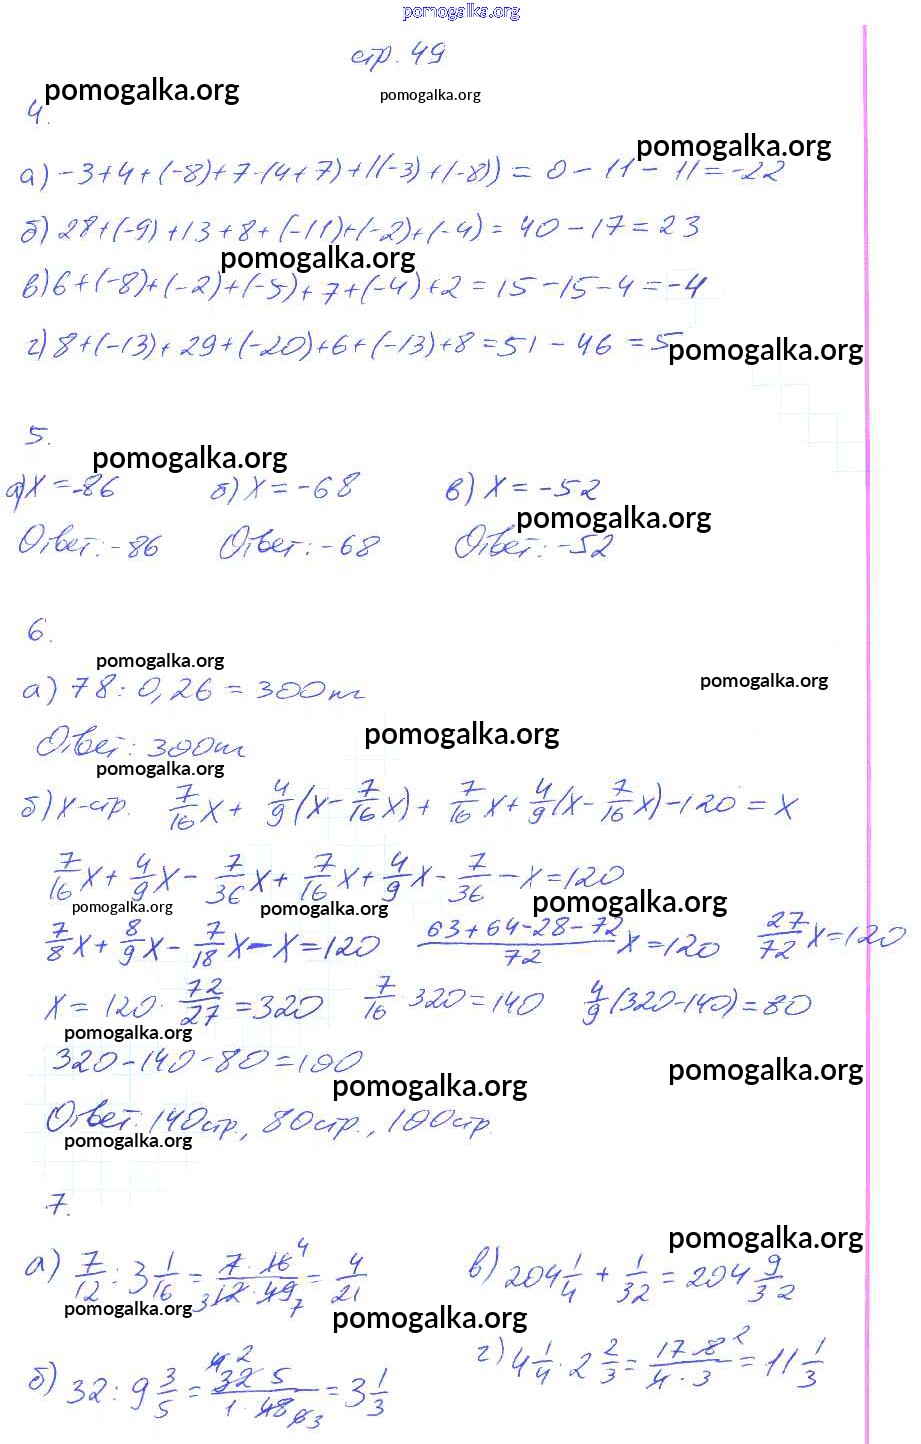 pomogalka.org
стр. 49
pomogalka.org
pomogalka.org
4.
pomogalka.org
а) -3+4+(-8)+7-(4+7)+((-3)+(-8)) = 0-11-11=-22
б) 28+(-9)+13+8+(-11)+(-2)+(-4) = 40-17=23
pomogalka.org
в) 6+(-8)+(-2)+(-5)+7+(-4)+2=15-15-4=-4
г) 8+(-13)+29+(-20)+6+(-13)+8=51-46=5
pomogalka.org
5.
pomogalka.org
а) x=-86 б) x=-68 в) x=-52
pomogalka.org
Ответ: -86 Ответ: -68 Ответ: -52
6.
pomogalka.org
pomogalka.org
а) 78:0,26=300т
pomogalka.org
Ответ: 300т
pomogalka.org
б) x-стр. 7/16 x + 4/9 (x - 7/16 x) + 7/16 x + 4/9 (x - 7/16 x) - 120 = x
7/16 x + 4/9 x - 7/36 x + 7/16 x + 4/9 x - 7/36 - x = 120
pomogalka.org
pomogalka.org
pomogalka.org
7/8 x + 8/9 x - 7/18 x - x = 120 (63+64-28-72)/72 x = 120 27/72 x = 120
x = 120 · 72/27 = 320 7/16 · 320 = 140 4/9 (320-140) = 80
pomogalka.org
320-140-80=100
pomogalka.org
pomogalka.org
Ответ: 140стр., 80стр., 100стр.
pomogalka.org
7.
pomogalka.org
а) 7/12 : 3 1/16 = (7·16 4)/(3 12·49 7) = 4/21 в) 204 1/4 + 1/32 = 204 9/32
pomogalka.org
pomogalka.org
б) 32 : 9 3/5 = (4 2 32 5)/(1·48 6 3) = 3 1/3 г) 4 1/4 · 2 2/3 = (17·8 2)/(4·3) = 11 1/3